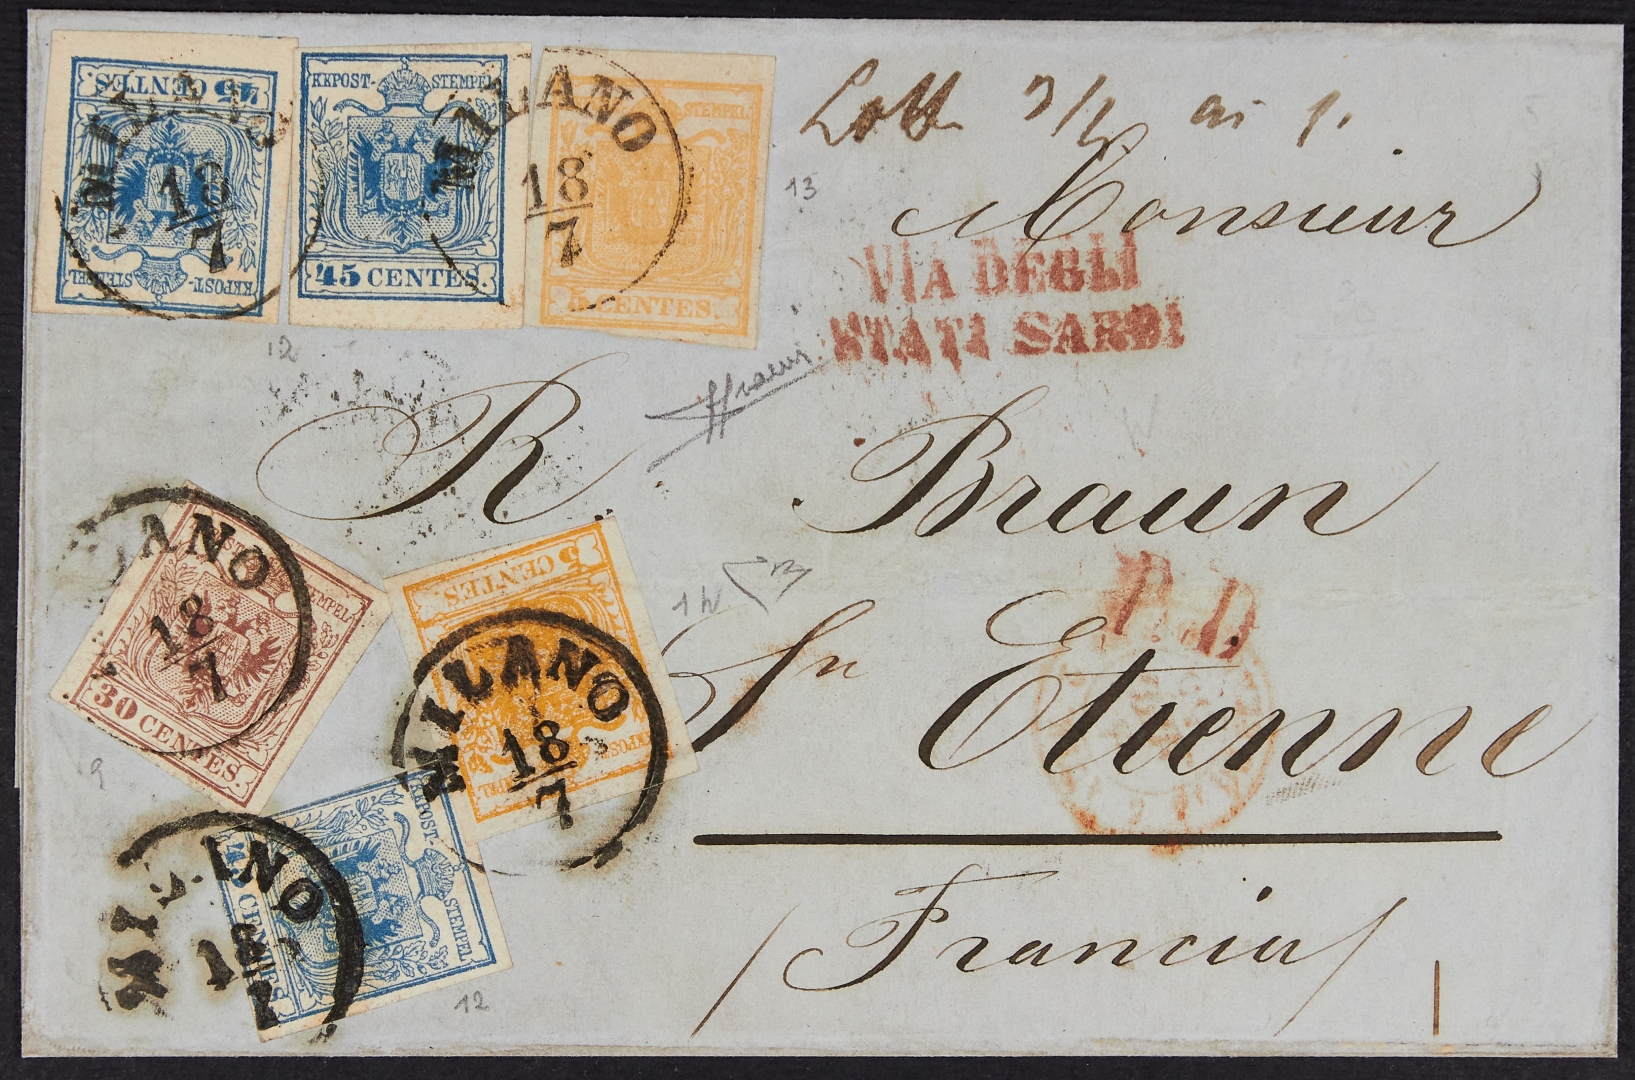 45 CENTES.
KKPOST-
STEMPEL
MILANO
18
7
KKPOST-
STEMPEL
45 CENTES.
MILANO
18
7
STEMPEL
5 CENTES.
13
Monsieur
VIA DEGLI
STATI SARDI
12
R. Braun
MILANO
18
7
STEMPEL
30 CENTES.
9
5 CENTES.
MILANO
18
7
KKPOST-
STEMPEL
P.D.
St Etienne
MILANO
18
7
45 CENTES.
KKPOST-
STEMPEL
12
/Francia/